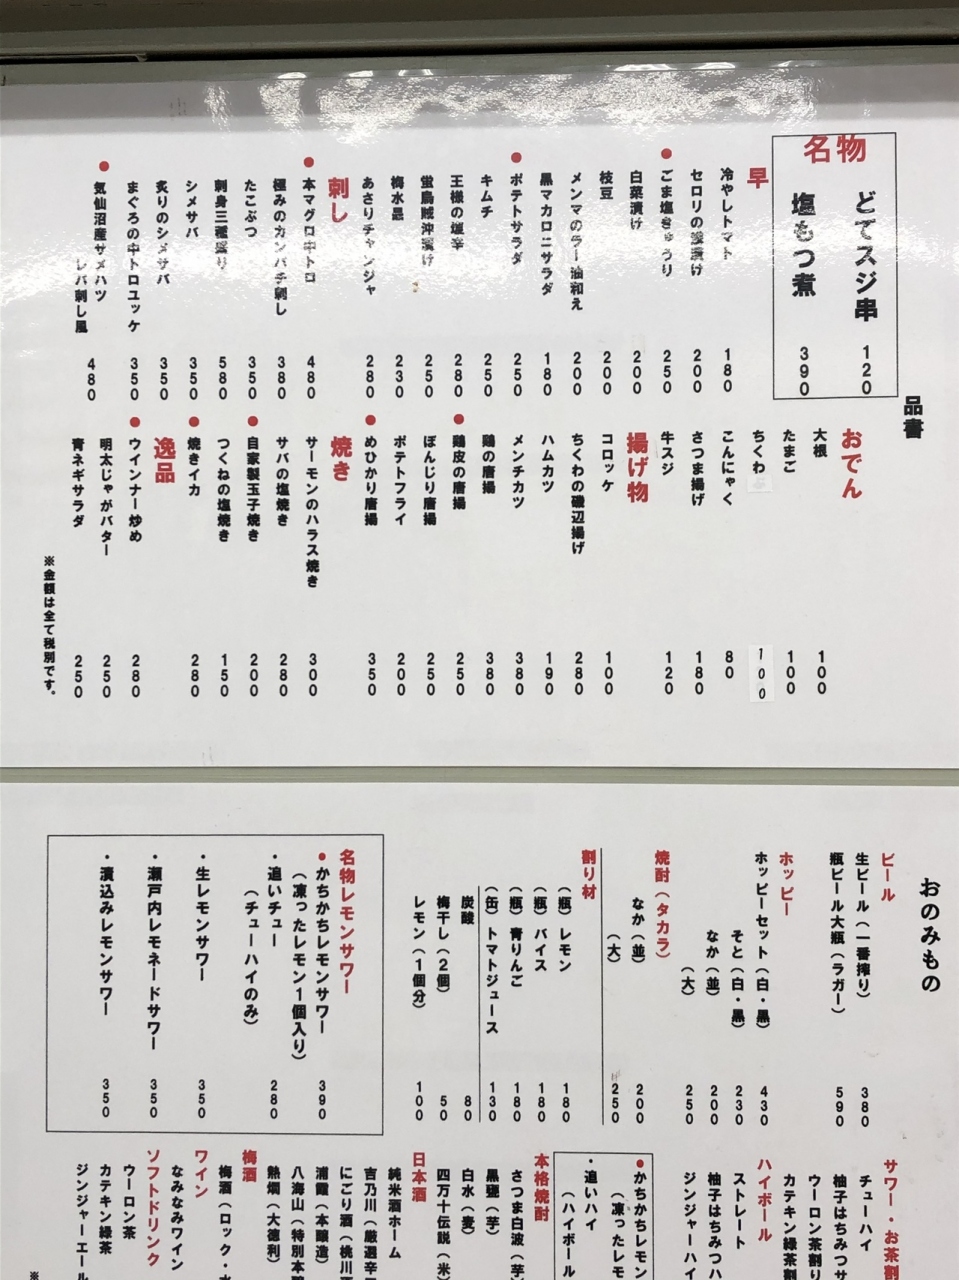 品書
名物
どてスジ串 120
塩もつ煮 390
早
冷やしトマト 180
セロリの浅漬け 200
●ごま塩きゅうり 250
白菜漬け 200
枝豆 200
メンマのラー油和え 200
黒マカロニサラダ 180
●ポテトサラダ 250
キムチ 250
王様の塩辛 280
蛍烏賊沖漬け 250
梅水晶 230
あさりチャンジャ 280
刺し
●本マグロ中トロ 480
極みのカンパチ刺し 380
たこぶつ 350
刺身三種盛り 580
シメサバ 350
炙りのシメサバ 350
まぐろの中トロユッケ 350
●気仙沼産サメハツ
レバ刺し風 480
おでん
大根 100
たまご 100
ちくわぶ 100
こんにゃく 80
さつま揚げ 180
牛スジ 120
揚げ物
コロッケ 100
ちくわの磯辺揚げ 280
ハムカツ 190
メンチカツ 380
鶏の唐揚 380
●鶏皮の唐揚 250
ぼんじり唐揚 250
ポテトフライ 200
●めひかり唐揚 350
焼き
サーモンのハラス焼き 300
サバの塩焼き 280
●自家製玉子焼き 200
つくねの塩焼き 150
●焼きイカ 280
逸品
●ウインナー炒め 280
明太じゃがバター 250
青ネギサラダ 250
※金額は全て税別です。
おのみもの
ビール
生ビール（一番搾り） 380
瓶ビール大瓶（ラガー） 590
ホッピー
ホッピーセット（白・黒） 430
そと（白・黒） 230
なか（並） 200
（大） 250
焼酎（タカラ）
なか（並） 200
（大） 250
割り材
（瓶）レモン 180
（瓶）バイス 180
（瓶）青りんご 180
（缶）トマトジュース 130
炭酸 80
梅干し（2個） 50
レモン（1個分） 100
名物レモンサワー
●かちかちレモンサワー 390
（凍ったレモン1個入り）
・追いチュー 280
（チューハイのみ）
・生レモンサワー 350
・瀬戸内レモネードサワー 350
・漬込みレモンサワー 350
サワー・お茶割
チューハイ
柚子はちみつサ
ウーロン茶割り
カテキン緑茶割
ハイボール
ストレート
柚子はちみつハ
ジンジャーハイ
●かちかちレモン
（凍ったレモ
・追いハイ
（ハイボール
本格焼酎
さつま白波（芋）
黒甕（芋）
白水（麦）
四万十伝説（米）
日本酒
純米酒ホーム
吉乃川（厳選辛
にごり酒（桃川
浦霞（本醸造）
八海山（特別本醸
熱燗（大徳利）
梅酒
梅酒（ロック・水
ワイン
なみなみワイン
ソフトドリンク
ウーロン茶
カテキン緑茶
ジンジャーエール
※